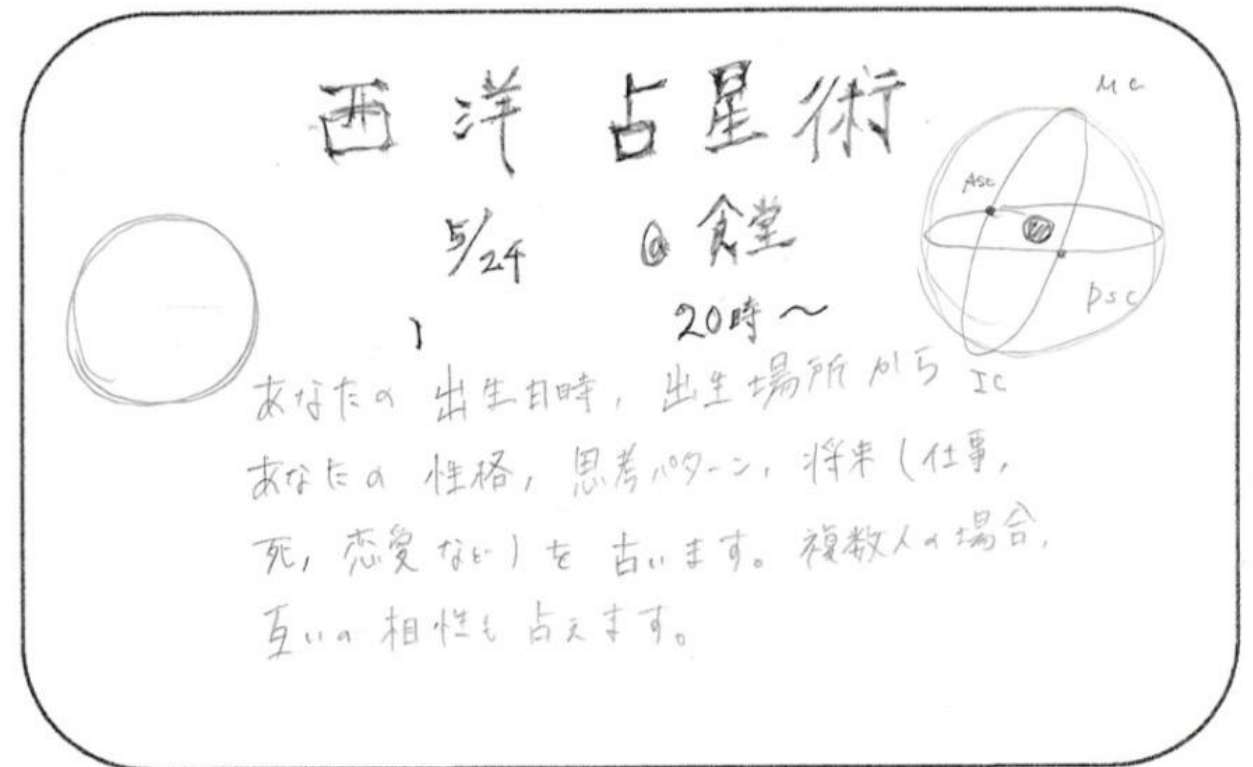 西洋占星術
MC
Asc
5/24 @食堂
Dsc
20時～
IC
あなたの出生日時，出生場所から
あなたの性格，思考パターン，将来（仕事，
死，恋愛など）を占います。複数人の場合，
互いの相性も占えます。